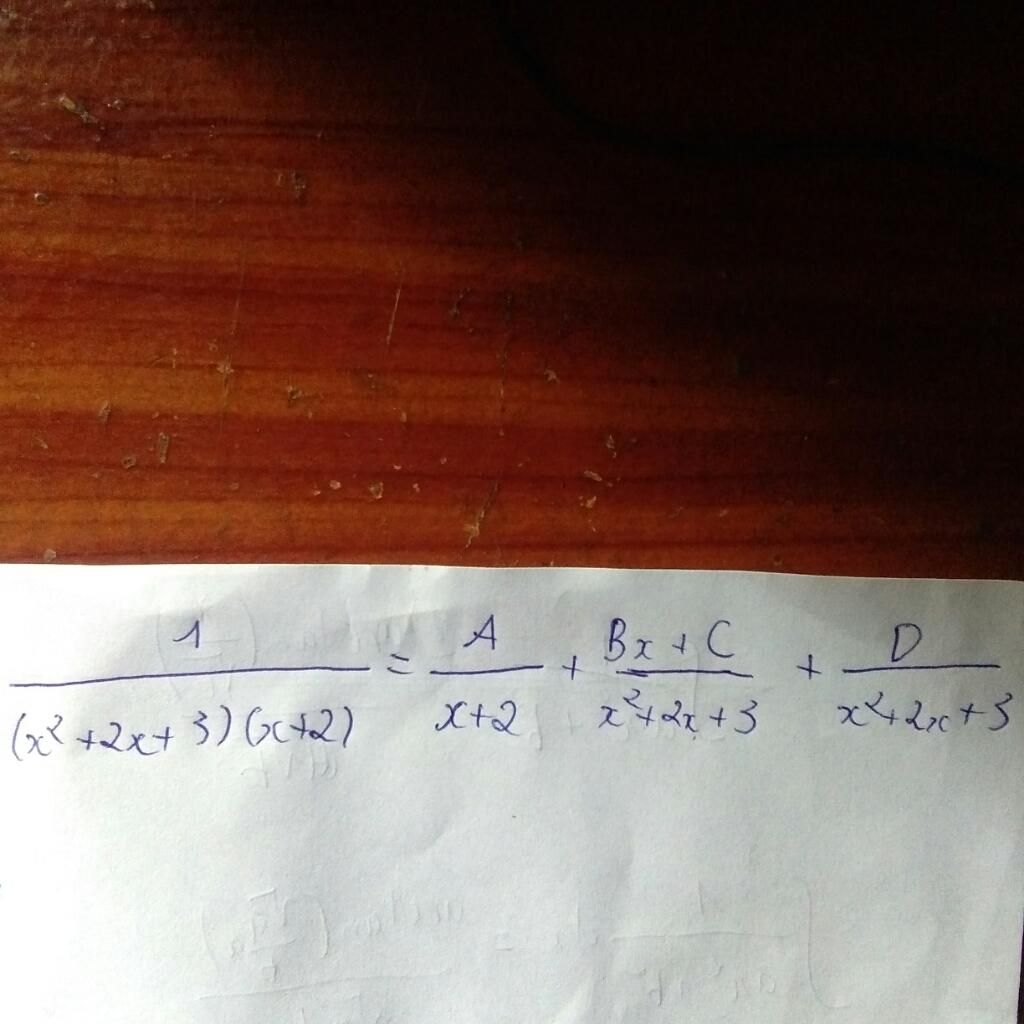 1/((x²+2x+3)(x+2)) = A/(x+2) + (Bx+C)/(x²+2x+3) + D/(x²+2x+3)